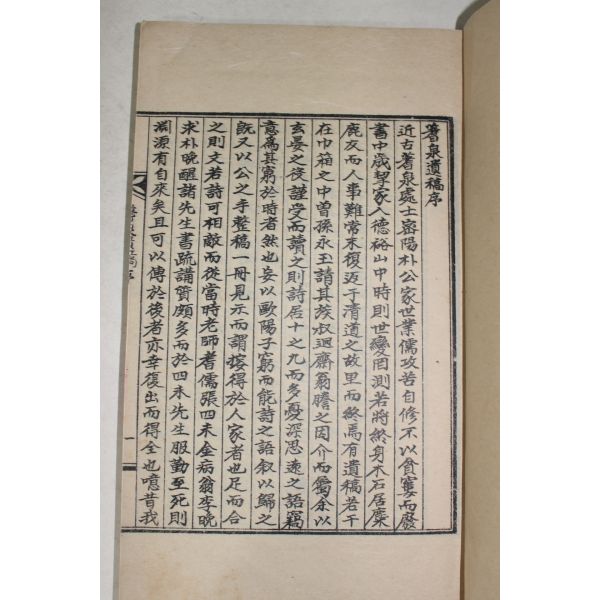 箸泉遺稿序
近古箸泉處士密陽朴公家世業儒攻苦自修不以貧窶而廢
書中歲挈家入德裕山中時則世變罔測若將終身木石居麋
鹿友而人事難常末復返于清道之故里而終焉有遺稿若干
在巾箱之中曾孫永玉請其族叔迴齋翁膽之因介而囑余以
玄晏之役謹受而讀之則詩居十之九而多憂深思遠之語竊
意爲其窮於時者然也妄以歐陽子窮而能詩之語叙以歸之
旣又以公之手整稿一冊見示而謂搜得於人家者也足而合
之則文若詩可相敵而從當時老師耆儒張四未金病翁李晚
求朴晩醒諸先生書疏講質頗多而於四未先生服勤至死則
淵源有自來矣且可以傳於後者亦幸復出而得全也噫昔我
一